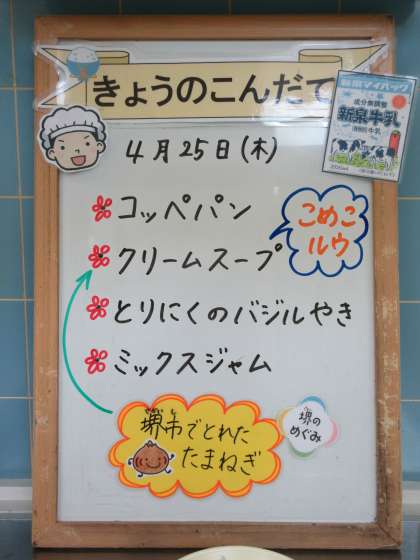 きょうのこんだて
4月25日(木)
コッペパン
クリームスープ
こめこ
ルウ
とりにくのバジルやき
ミックスジャム
堺市でとれた
たまねぎ
堺の
めぐみ
成分無調整
新泉牛乳